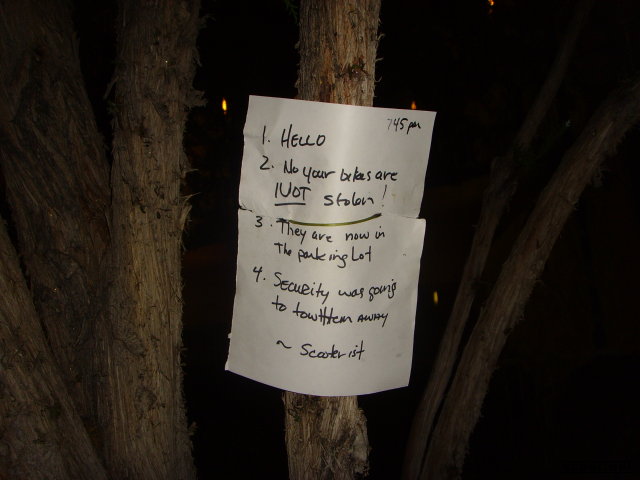 745 pm
1. HELLO
2. No your bikes are
NOT stolen!
3. They are now in
The parking Lot
4. Security was going
to tow them AWAY
~ Scooterist